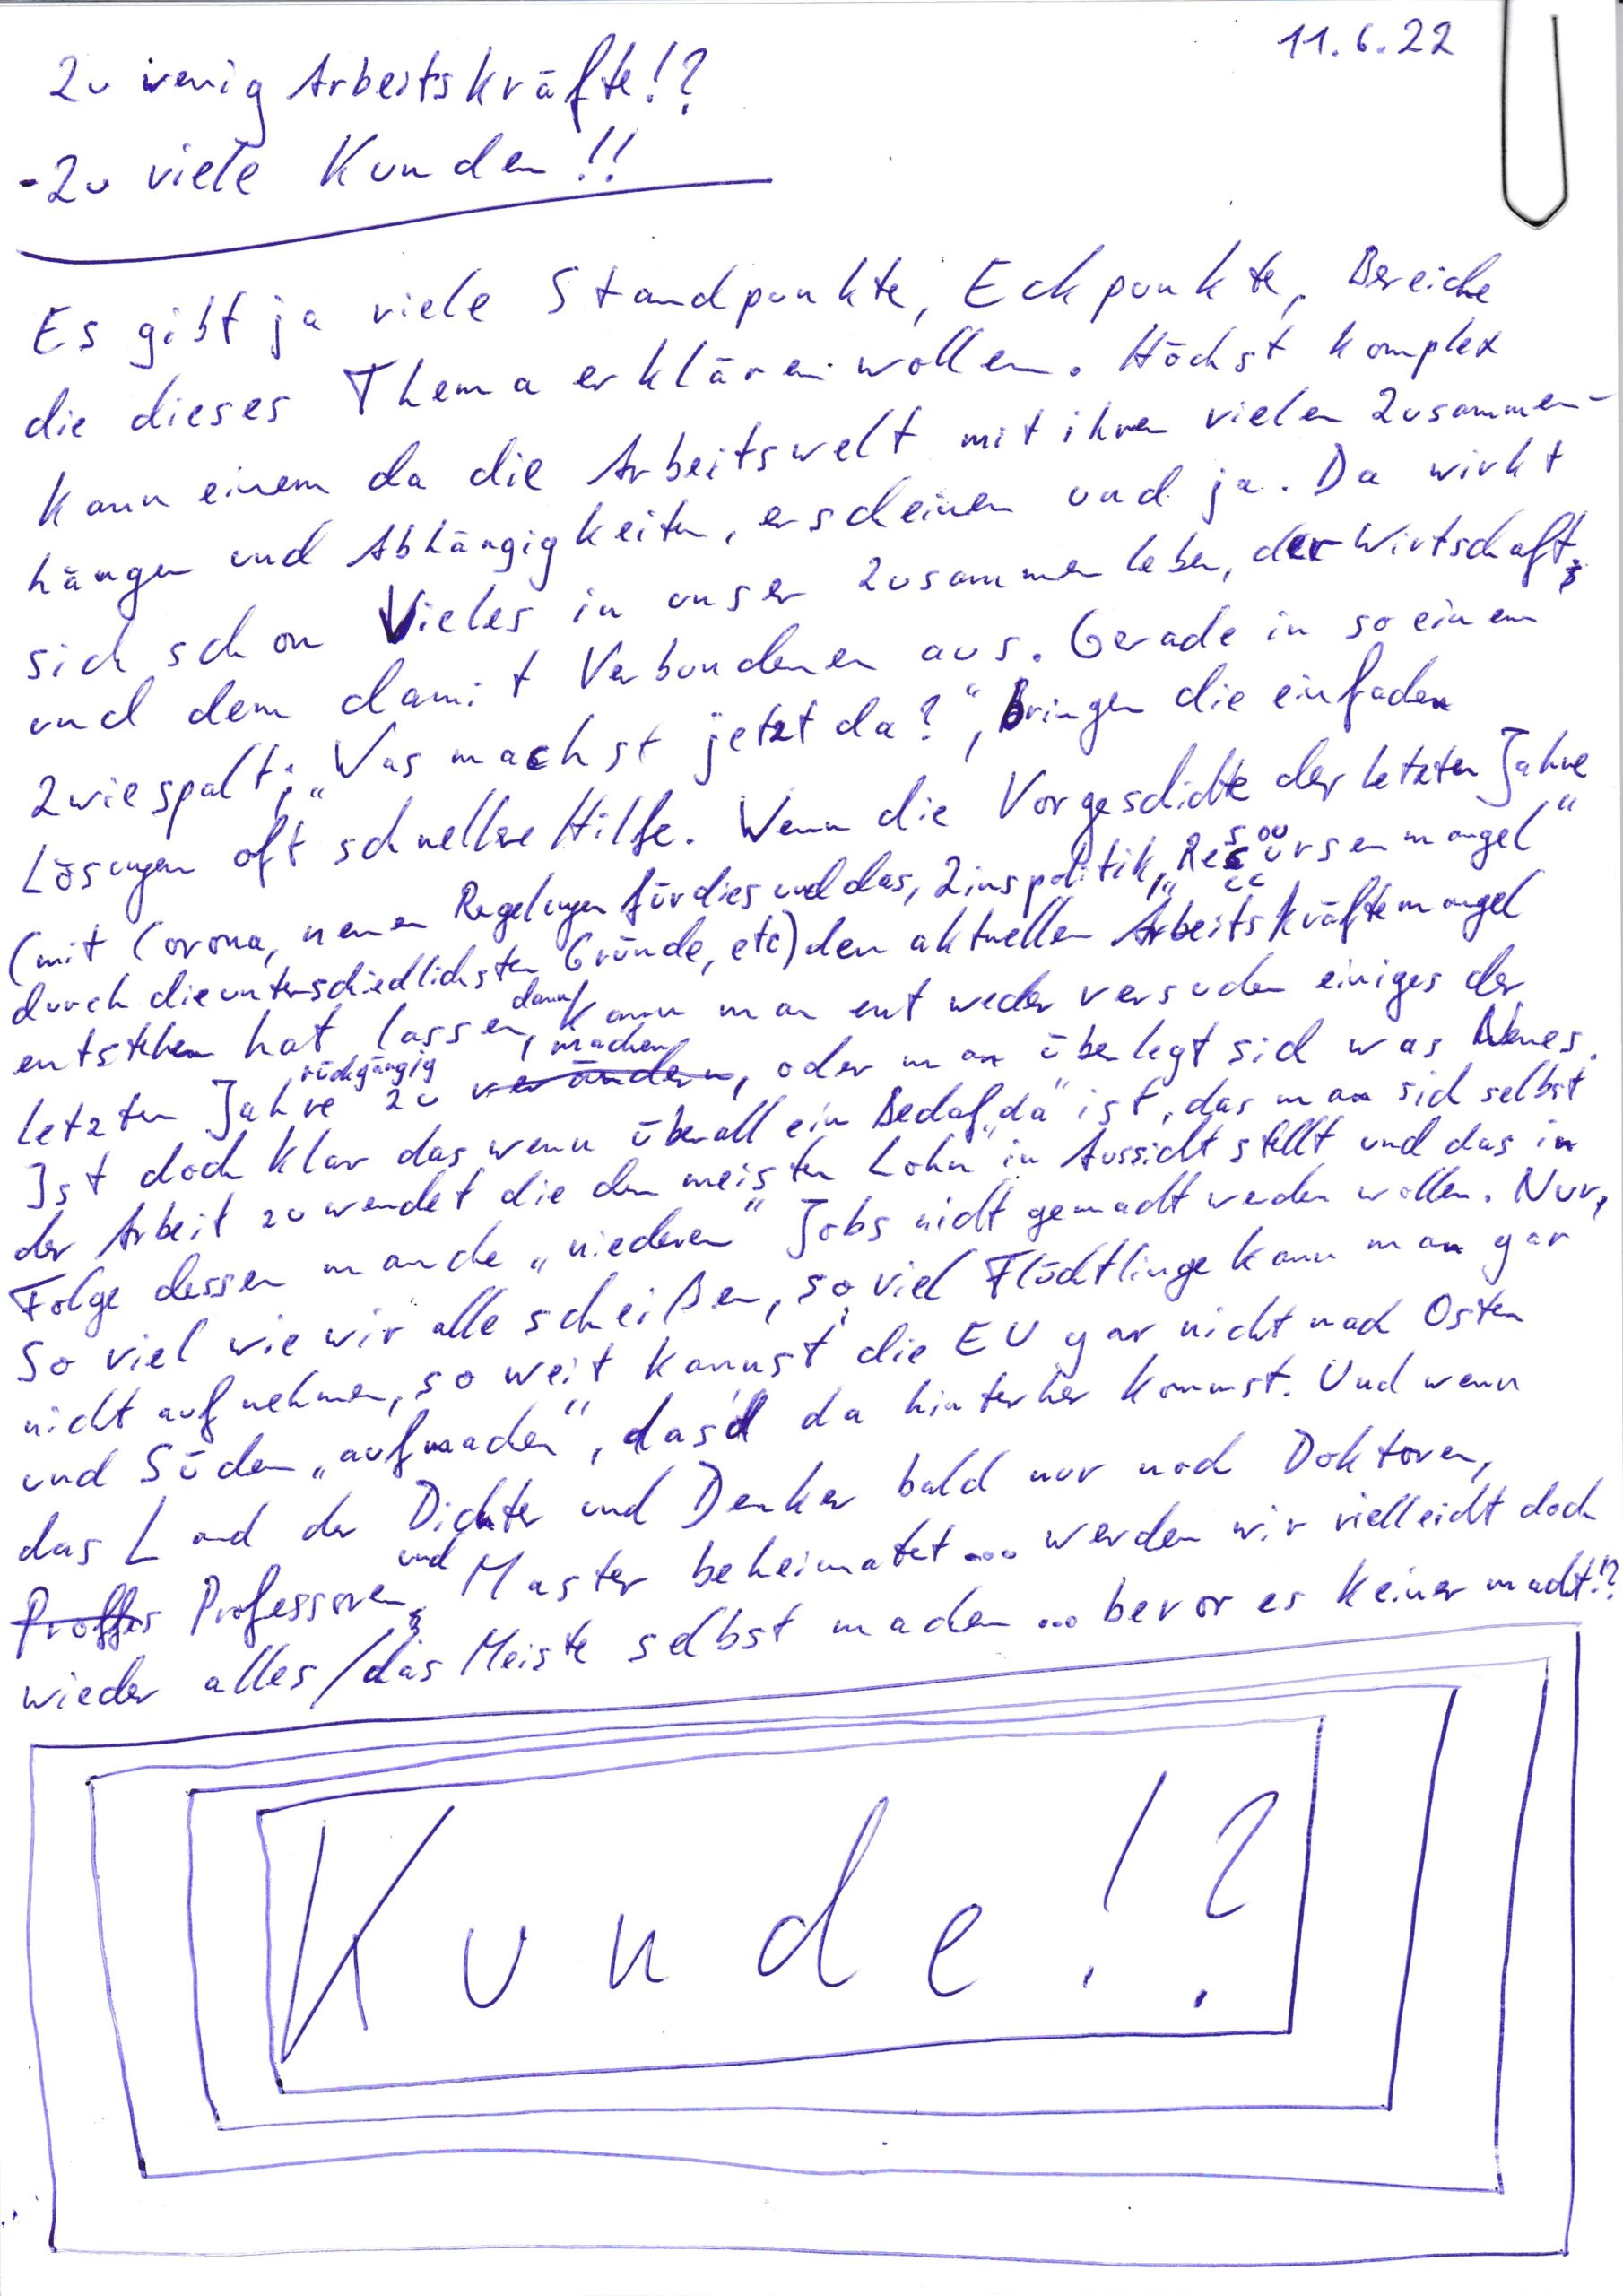 11.6.22
Zu wenig Arbeitskräfte!?
- Zu viele Kunden!!
Es gibt ja viele Standpunkte, Eckpunkte, Bereiche
die dieses Thema erklären wollen. Höchst komplex
kann einem da die Arbeitswelt mit ihren vielen Zusammen-
hängen und Abhängigkeiten, erscheinen und ja. Da wirkt
sich schon Vieles in unser Zusammenleben, der Wirtschaft,
und dem damit Verbundenen aus. Gerade in so einem
Zwiespalt; „Was machst jetzt da?“, bringen die einfachen
Lösungen oft schnellere Hilfe. Wenn die Vorgeschichte der letzten Jahre
(mit Corona, neuen Regelungen für dies und das, Zinspolitik, „Ressoursenmangel“
durch die unterschiedlichsten Gründe, etc) den aktuellen Arbeitskräftemangel
entstehen hat lassen, dann kann man entweder versuchen einiges der
letzten Jahre rückgängig zu machen verändern, oder man überlegt sich was Neues.
Ist doch klar das wenn überall ein Bedaf „da“ ist, das man sich selbst
der Arbeit zuwendet die den meisten Lohn in Aussicht stellt und das in
Folge dessen manche „niederen“ Jobs nicht gemacht werden wollen. Nur,
so viel wie wir alle scheißen, so viel Flüchtlinge kann man gar
nicht aufnehmen, so weit kannst die EU gar nicht nach Osten
und Süden „aufmachen“, das'd da hinterher kommst. Und wenn
das Land der Dichter und Denker bald nur noch Doktoren,
Proffes Professoren und Master beheimatet... werden wir vielleicht doch
wieder alles/das Meiste selbst machen ... bevor es keiner macht!?
Kunde!?